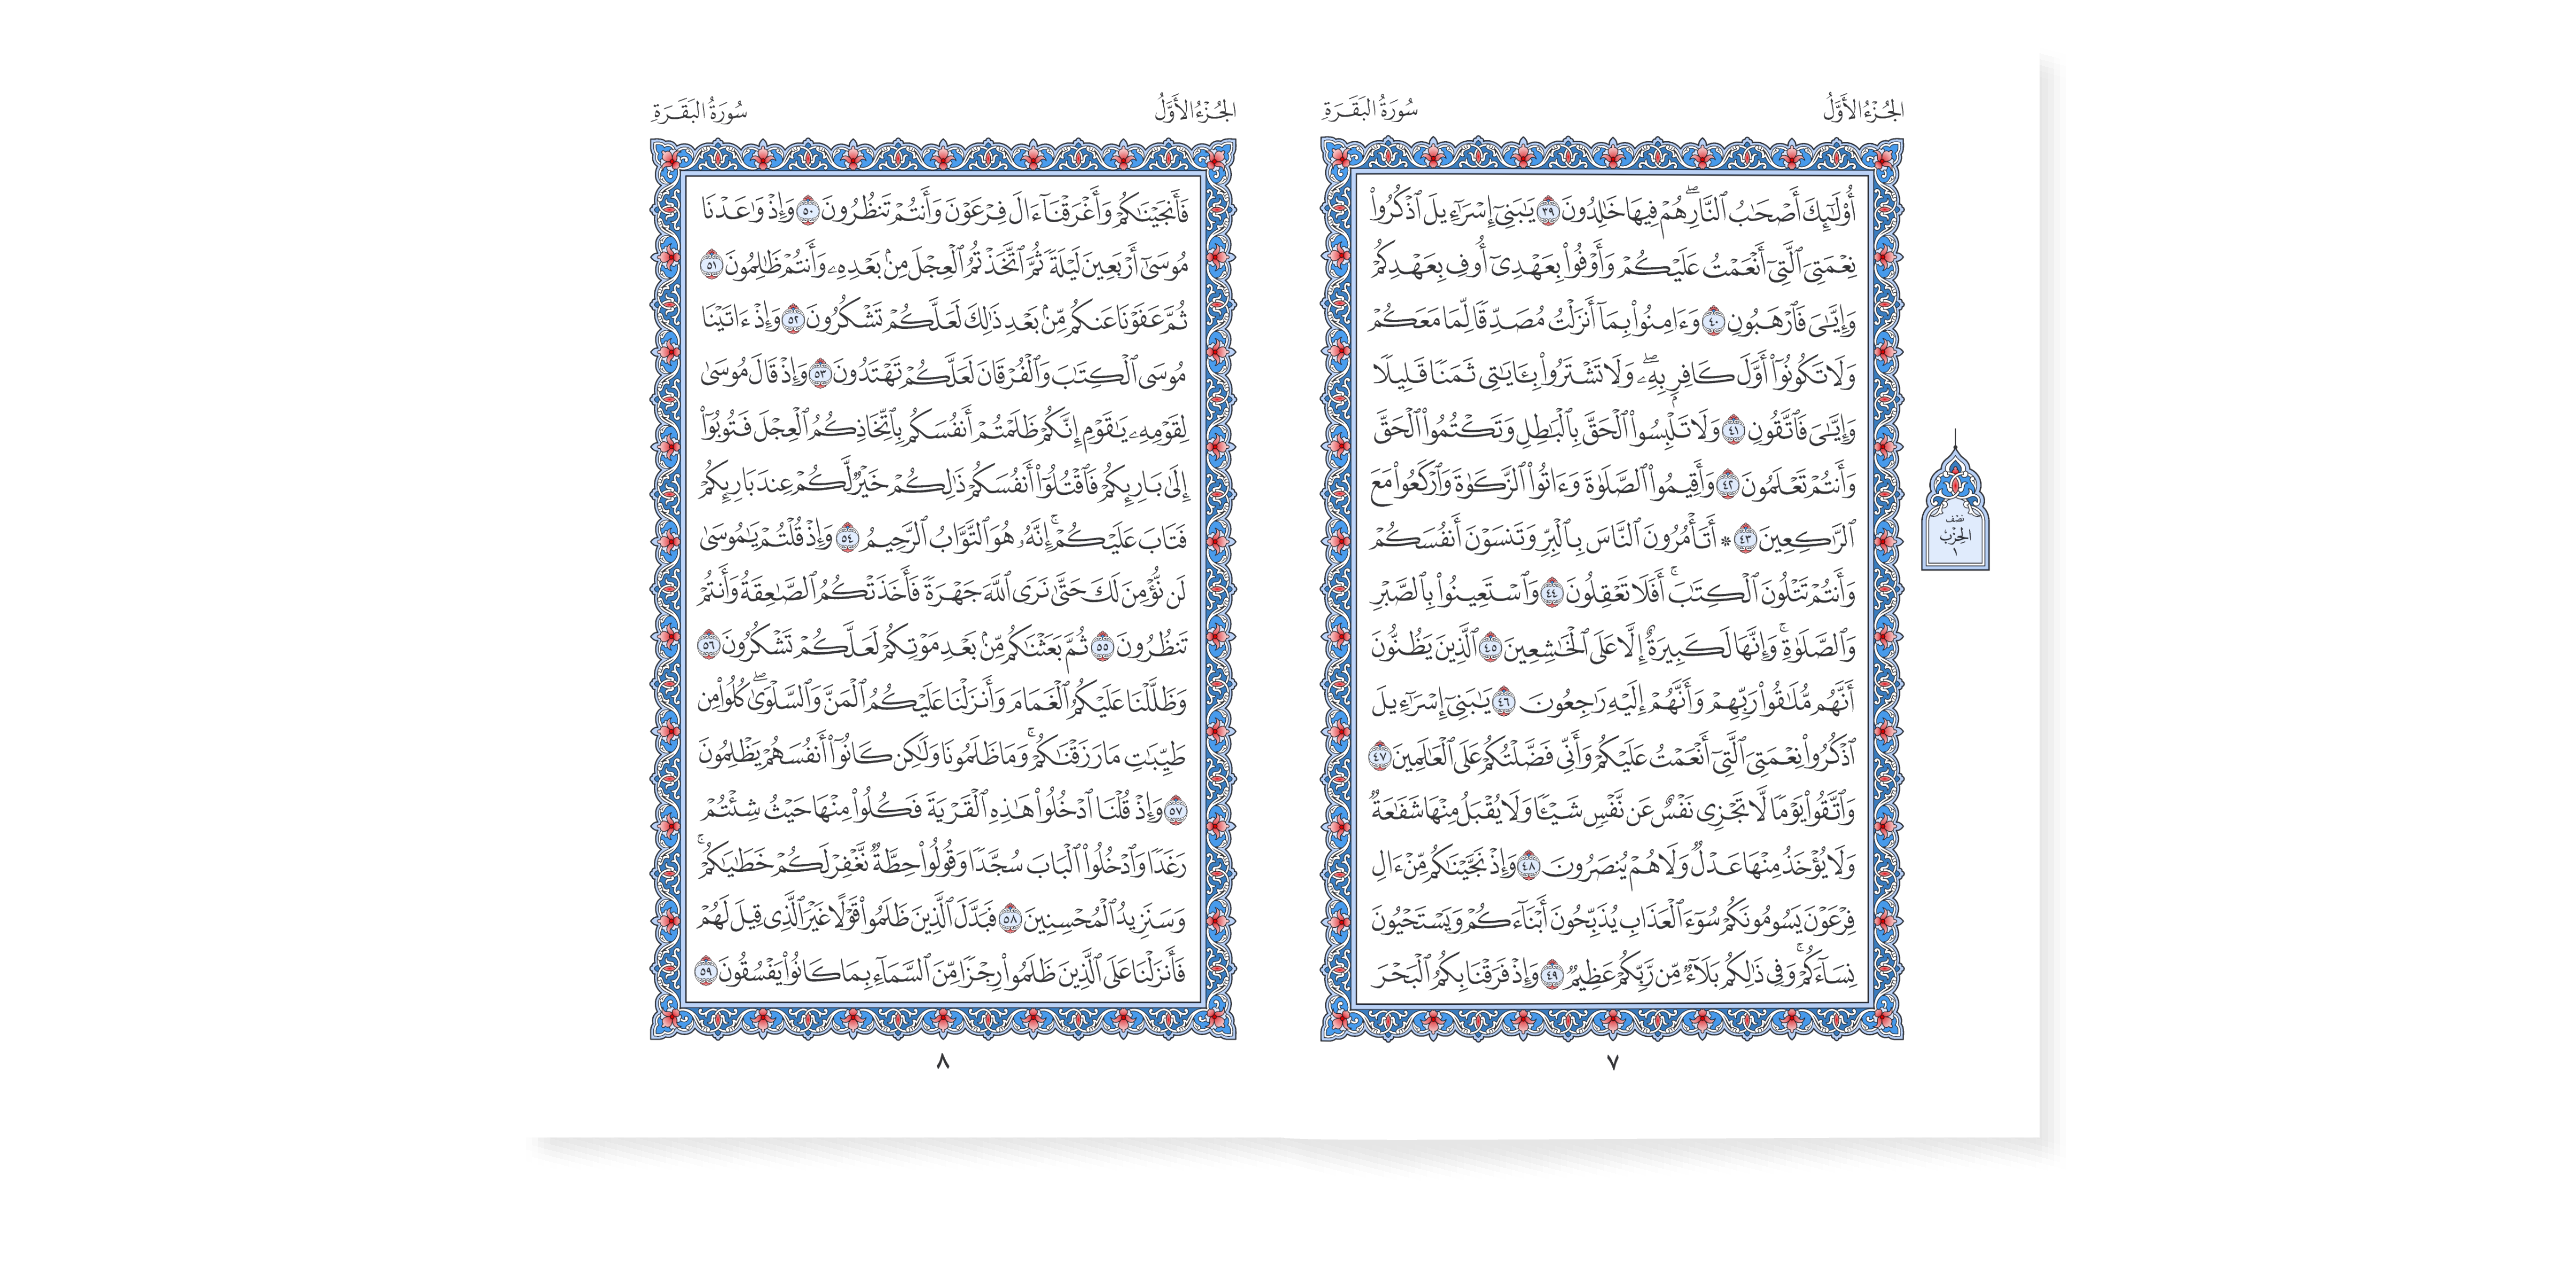 الجُزْءُ الأَوَّلُ
سُورَةُ البَقَرَةِ
أُوْلَٰٓئِكَ أَصْحَٰبُ ٱلنَّارِۖ هُمْ فِيهَا خَٰلِدُونَ ٣٩ يَٰبَنِىٓ إِسْرَٰٓءِيلَ ٱذْكُرُوا۟
نِعْمَتِىَ ٱلَّتِىٓ أَنْعَمْتُ عَلَيْكُمْ وَأَوْفُوا۟ بِعَهْدِىٓ أُوفِ بِعَهْدِكُمْ
وَإِيَّٰىَ فَٱرْهَبُونِ ٤٠ وَءَامِنُوا۟ بِمَآ أَنزَلْتُ مُصَدِّقًا لِّمَا مَعَكُمْ
وَلَا تَكُونُوٓا۟ أَوَّلَ كَافِرٍۭ بِهِۦۖ وَلَا تَشْتَرُوا۟ بِـَٔايَٰتِى ثَمَنًا قَلِيلًا
وَإِيَّٰىَ فَٱتَّقُونِ ٤١ وَلَا تَلْبِسُوا۟ ٱلْحَقَّ بِٱلْبَٰطِلِ وَتَكْتُمُوا۟ ٱلْحَقَّ
وَأَنتُمْ تَعْلَمُونَ ٤٢ وَأَقِيمُوا۟ ٱلصَّلَوٰةَ وَءَاتُوا۟ ٱلزَّكَوٰةَ وَٱرْكَعُوا۟ مَعَ
ٱلرَّٰكِعِينَ ٤٣ * أَتَأْمُرُونَ ٱلنَّاسَ بِٱلْبِرِّ وَتَنسَوْنَ أَنفُسَكُمْ
وَأَنتُمْ تَتْلُونَ ٱلْكِتَٰبَۚ أَفَلَا تَعْقِلُونَ ٤٤ وَٱسْتَعِينُوا۟ بِٱلصَّبْرِ
وَٱلصَّلَوٰةِۚ وَإِنَّهَا لَكَبِيرَةٌ إِلَّا عَلَى ٱلْخَٰشِعِينَ ٤٥ ٱلَّذِينَ يَظُنُّونَ
أَنَّهُم مُّلَٰقُوا۟ رَبِّهِمْ وَأَنَّهُمْ إِلَيْهِ رَٰجِعُونَ ٤٦ يَٰبَنِىٓ إِسْرَٰٓءِيلَ
ٱذْكُرُوا۟ نِعْمَتِىَ ٱلَّتِىٓ أَنْعَمْتُ عَلَيْكُمْ وَأَنِّى فَضَّلْتُكُمْ عَلَى ٱلْعَٰلَمِينَ ٤٧
وَٱتَّقُوا۟ يَوْمًا لَّا تَجْزِى نَفْسٌ عَن نَّفْسٍ شَيْـًٔا وَلَا يُقْبَلُ مِنْهَا شَفَٰعَةٌ
وَلَا يُؤْخَذُ مِنْهَا عَدْلٌ وَلَا هُمْ يُنصَرُونَ ٤٨ وَإِذْ نَجَّيْنَٰكُم مِّنْ ءَالِ
فِرْعَوْنَ يَسُومُونَكُمْ سُوٓءَ ٱلْعَذَابِ يُذَبِّحُونَ أَبْنَآءَكُمْ وَيَسْتَحْيُونَ
نِسَآءَكُمْۚ وَفِى ذَٰلِكُم بَلَآءٌ مِّن رَّبِّكُمْ عَظِيمٌ ٤٩ وَإِذْ فَرَقْنَا بِكُمُ ٱلْبَحْرَ
٧
نصف
الحِزْب
١
الجُزْءُ الأَوَّلُ
سُورَةُ البَقَرَةِ
فَأَنجَيْنَٰكُمْ وَأَغْرَقْنَآ ءَالَ فِرْعَوْنَ وَأَنتُمْ تَنظُرُونَ ٥٠ وَإِذْ وَٰعَدْنَا
مُوسَىٰٓ أَرْبَعِينَ لَيْلَةً ثُمَّ ٱتَّخَذْتُمُ ٱلْعِجْلَ مِنۢ بَعْدِهِۦ وَأَنتُمْ ظَٰلِمُونَ ٥١
ثُمَّ عَفَوْنَا عَنكُم مِّنۢ بَعْدِ ذَٰلِكَ لَعَلَّكُمْ تَشْكُرُونَ ٥٢ وَإِذْ ءَاتَيْنَا
مُوسَى ٱلْكِتَٰبَ وَٱلْفُرْقَانَ لَعَلَّكُمْ تَهْتَدُونَ ٥٣ وَإِذْ قَالَ مُوسَىٰ
لِقَوْمِهِۦ يَٰقَوْمِ إِنَّكُمْ ظَلَمْتُمْ أَنفُسَكُم بِٱتِّخَاذِكُمُ ٱلْعِجْلَ فَتُوبُوٓا۟
إِلَىٰ بَارِئِكُمْ فَٱقْتُلُوٓا۟ أَنفُسَكُمْ ذَٰلِكُمْ خَيْرٌ لَّكُمْ عِندَ بَارِئِكُمْ
فَتَابَ عَلَيْكُمْۚ إِنَّهُۥ هُوَ ٱلتَّوَّابُ ٱلرَّحِيمُ ٥٤ وَإِذْ قُلْتُمْ يَٰمُوسَىٰ
لَن نُّؤْمِنَ لَكَ حَتَّىٰ نَرَى ٱللَّهَ جَهْرَةً فَأَخَذَتْكُمُ ٱلصَّٰعِقَةُ وَأَنتُمْ
تَنظُرُونَ ٥٥ ثُمَّ بَعَثْنَٰكُم مِّنۢ بَعْدِ مَوْتِكُمْ لَعَلَّكُمْ تَشْكُرُونَ ٥٦
وَظَلَّلْنَا عَلَيْكُمُ ٱلْغَمَامَ وَأَنزَلْنَا عَلَيْكُمُ ٱلْمَنَّ وَٱلسَّلْوَىٰۖ كُلُوا۟ مِن
طَيِّبَٰتِ مَا رَزَقْنَٰكُمْۚ وَمَا ظَلَمُونَا وَلَٰكِن كَانُوٓا۟ أَنفُسَهُمْ يَظْلِمُونَ
٥٧ وَإِذْ قُلْنَا ٱدْخُلُوا۟ هَٰذِهِ ٱلْقَرْيَةَ فَكُلُوا۟ مِنْهَا حَيْثُ شِئْتُمْ
رَغَدًا وَٱدْخُلُوا۟ ٱلْبَابَ سُجَّدًا وَقُولُوا۟ حِطَّةٌ نَّغْفِرْ لَكُمْ خَطَٰيَٰكُمْۚ
وَسَنَزِيدُ ٱلْمُحْسِنِينَ ٥٨ فَبَدَّلَ ٱلَّذِينَ ظَلَمُوا۟ قَوْلًا غَيْرَ ٱلَّذِى قِيلَ لَهُمْ
فَأَنزَلْنَا عَلَى ٱلَّذِينَ ظَلَمُوا۟ رِجْزًا مِّنَ ٱلسَّمَآءِ بِمَا كَانُوا۟ يَفْسُقُونَ ٥٩
٨